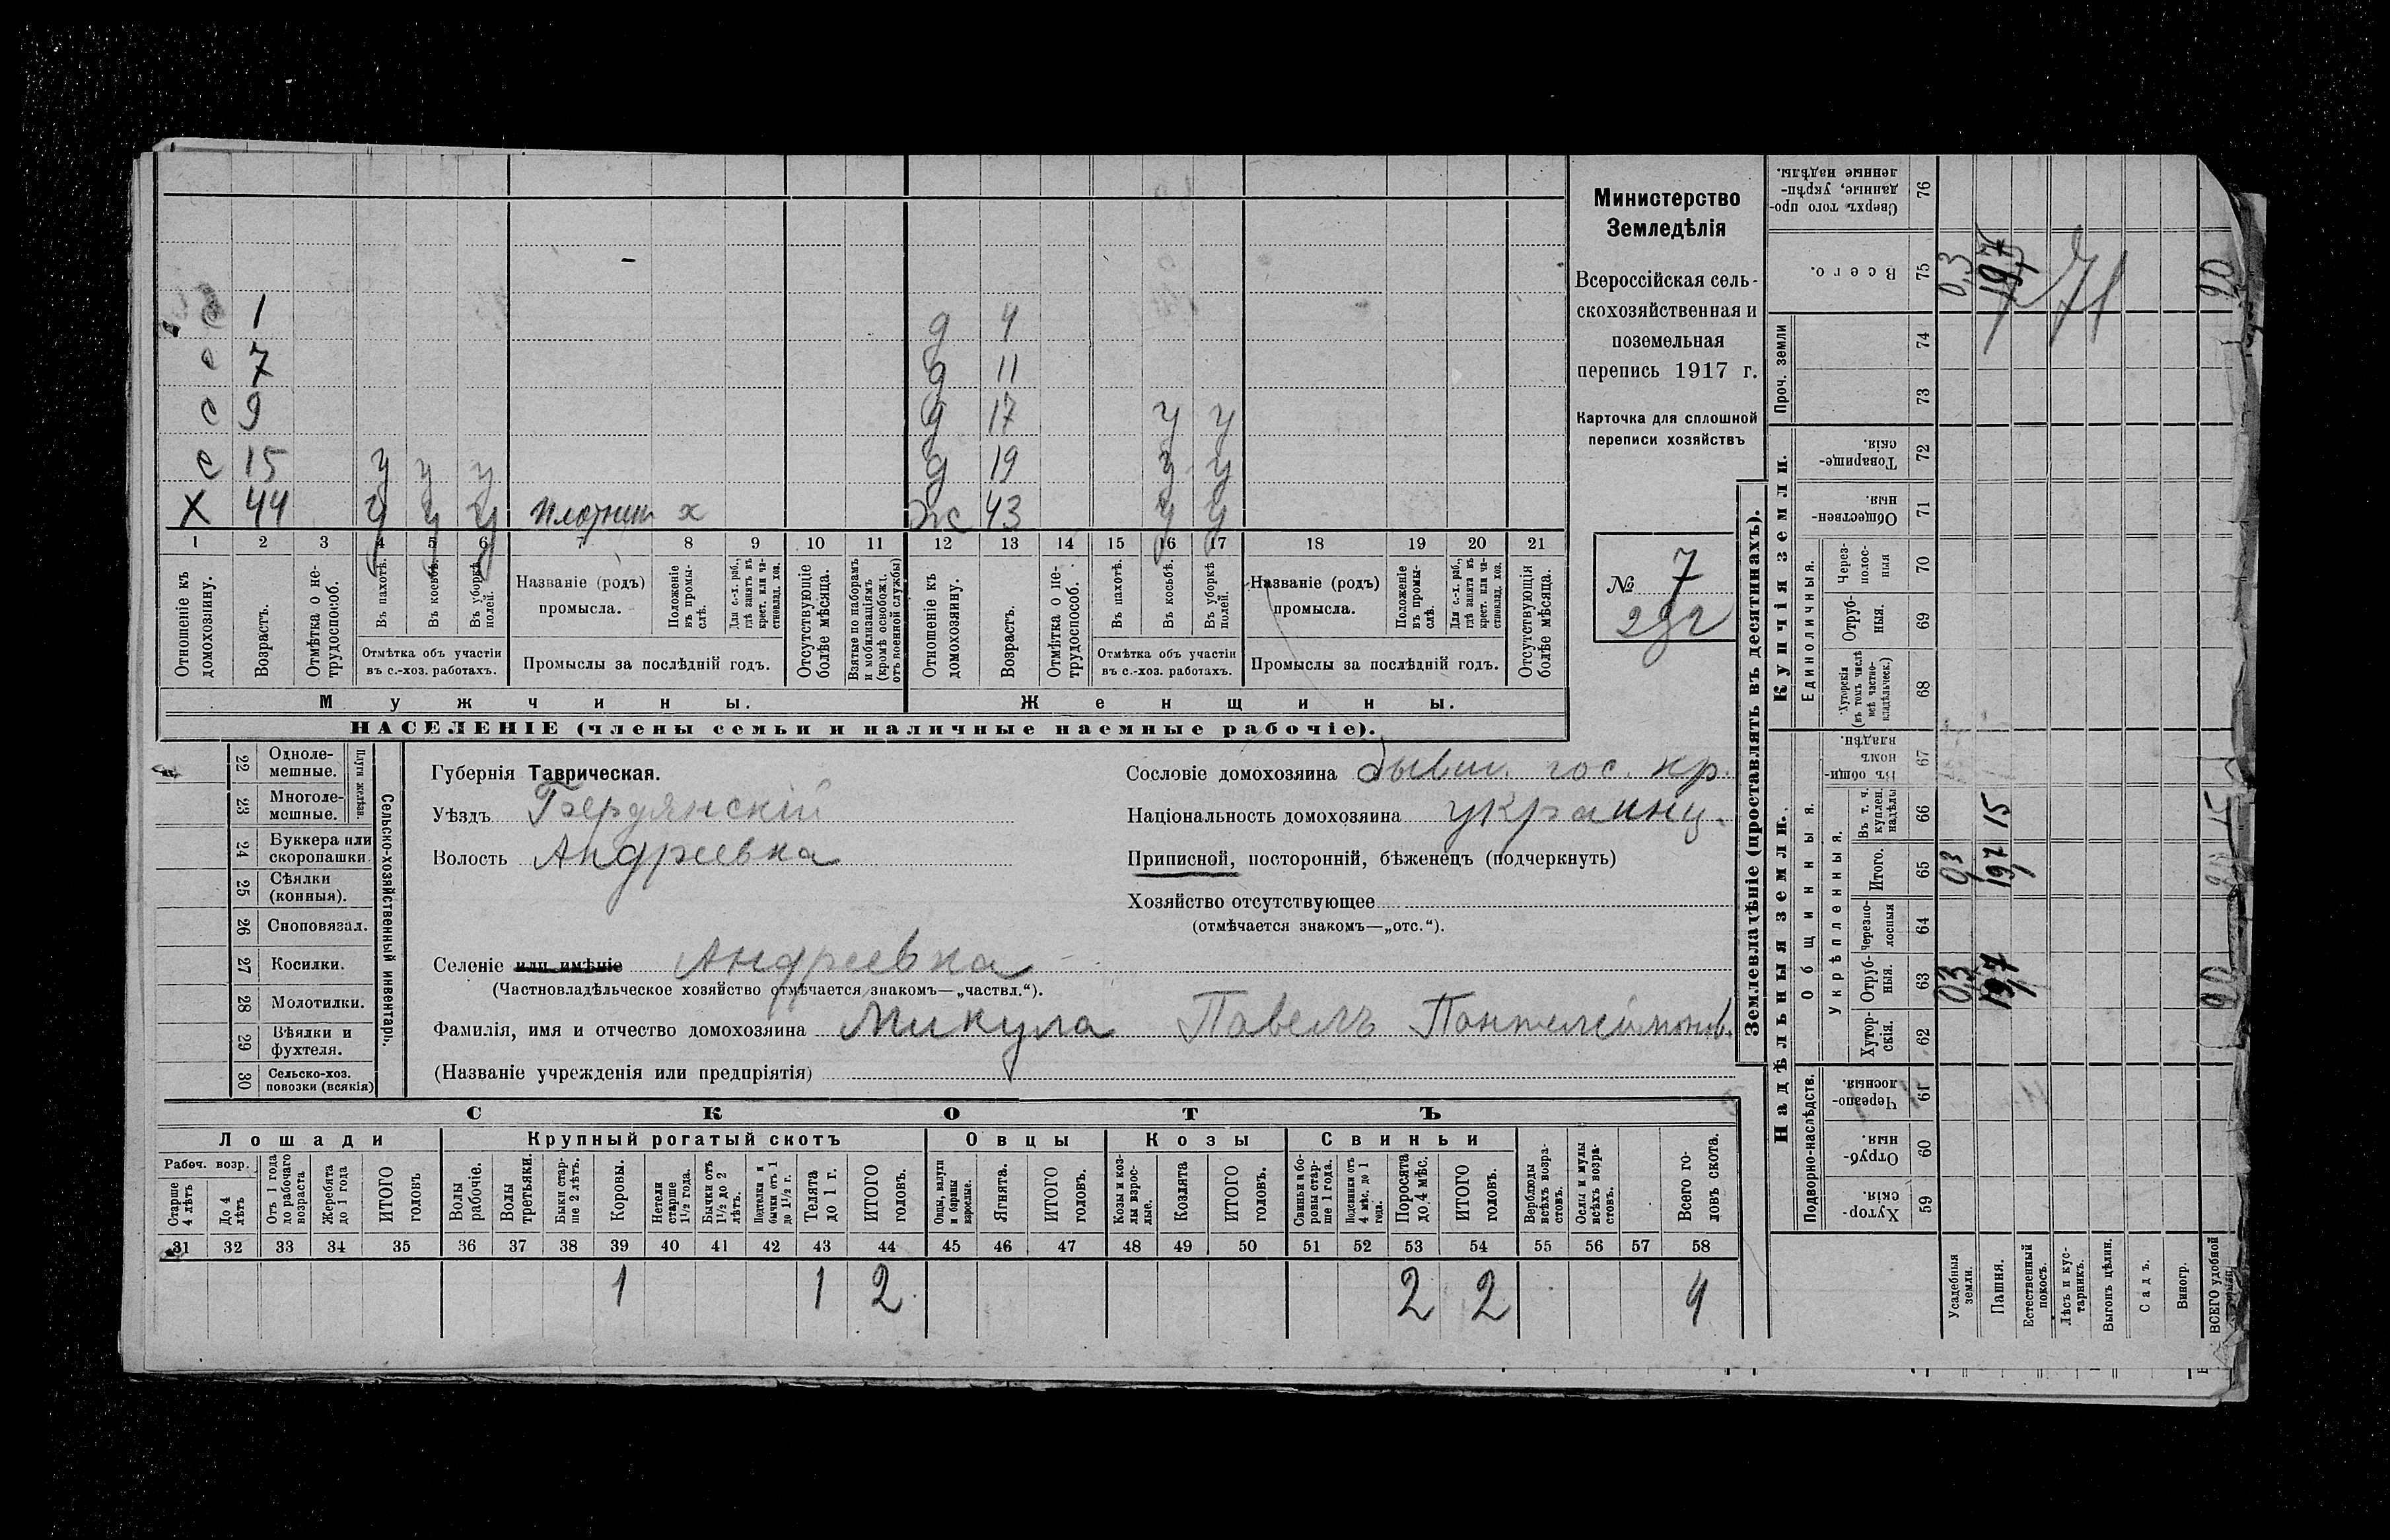 Министерство
Земледѣлія
Всероссійская сель-
скохозяйственная и
поземельная
перепись 1917 г.
Карточка для сплошной
переписи хозяйствъ
№ 7
292
с 1
с 7
с 9
с 15 у у у
х 44 у у у плотник х
д 4
д 11
д 17 у у
д 19 у у
ж 43 у у
1 2 3 4 5 6 7 8 9 10 11 12 13 14 15 16 17 18 19 20 21
Отношеніе къ домохозяину.
Возрастъ.
Отмѣтка о не-трудоспособ.
Въ пахотѣ.
Въ косьбѣ.
Въ уборкѣ полей.
Отмѣтка объ участіи
въ с.-хоз. работахъ.
Названіе (родъ)
промысла.
Положеніе въ промы-слѣ.
Для с.-х. раб., гдѣ занятъ въ крест. или ча-стновлад. хоз.
Промыслы за послѣдній годъ.
Отсутствующіе болѣе мѣсяца.
Взятые по наборамъ и мобилизаціямъ (кромѣ освобожд. отъ военной службы)
Отношеніе къ домохозяину.
Возрастъ.
Отмѣтка о не-трудоспособ.
Въ пахотѣ.
Въ косьбѣ.
Въ уборкѣ полей.
Отмѣтка объ участіи
въ с.-хоз. работахъ.
Названіе (родъ)
промысла.
Положеніе въ промы-слѣ.
Для с.-х. раб., гдѣ занята въ крест. или ча-стновлад. хоз.
Промыслы за послѣдній годъ.
Отсутствующія болѣе мѣсяца.
Мужчины.
Женщины.
НАСЕЛЕНІЕ (члены семьи и наличные наемные рабочіе).
22 Одноле-мешные.
23 Многоле-мешные.
Плуги желѣзн.
24 Буккера или скоропашки.
25 Сѣялки (конныя).
26 Сноповязал.
27 Косилки.
28 Молотилки.
29 Вѣялки и фухтеля.
30 Сельско-хоз. повозки (всякія)
Сельско-хозяйственный инвентарь.
Губернія Таврическая.
Уѣздъ Бердянскій
Волость Андреевка
Селеніе или имѣніе Андреевка
(Частновладѣльческое хозяйство отмѣчается знакомъ—„частвл.“).
Фамилія, имя и отчество домохозяина Микула Павелъ Пантелеймонов.
(Названіе учрежденія или предпріятія)
Сословіе домохозяина бывш. гос. кр.
Національность домохозяина украинц.
Приписной, посторонній, бѣженецъ (подчеркнуть)
Хозяйство отсутствующее
(отмѣчается знакомъ—„отс.“).
СКОТЪ
Лошади
Крупный рогатый скотъ
Овцы
Козы
Свиньи
Рабоч. возр.
Старше 4 лѣтъ
До 4 лѣтъ
Отъ 1 года до рабочаго возраста
Жеребята до 1 года
ИТОГО головъ
Волы рабочіе.
Волы третьяки.
Быки стар-ше 2 лѣтъ.
Коровы.
Нетели старше 1½ года.
Бычки отъ 1½ до 2 лѣтъ.
Подтелки и бычки отъ 1 до 1½ г.
Телята до 1 г.
ИТОГО головъ.
Овцы, валухи и бараны взрослые.
Ягнята.
ИТОГО головъ.
Козы и коз-лы взрос-лые.
Козлята
ИТОГО головъ.
Свиньи и бо-ровы стар-ше 1 года.
Подсвинки отъ 4 мѣс. до 1 года.
Поросята до 4 мѣс.
ИТОГО головъ.
Верблюды всѣхъ возра-стовъ.
Ослы и мулы всѣхъ возра-стовъ.
Всего го-ловъ скота.
31 32 33 34 35 36 37 38 39 40 41 42 43 44 45 46 47 48 49 50 51 52 53 54 55 56 57 58
1 1 2 2 2 4
Землевладѣніе (проставлять въ десятинахъ).
Надѣльныя земли.
Купчія земли.
Проч. земли
Подворно-наслѣдств.
Общинныя.
Укрѣпленныя.
Единоличныя.
Хутор-скія. 59
Отруб-ныя. 60
Черезпо-лосныя. 61
Хутор-скія. 62
Отруб-ныя. 63
Черезпо-лосныя 64
Итого. 65
Въ т. ч. куплен. надѣлы 66
Въ общи-номъ владѣн. 67
Хуторскія (въ томъ числѣ всѣ частно-владѣльческ.) 68
Отруб-ныя. 69
Через-полос-ныя 70
Обществен-ныя. 71
Товарище-скія. 72
73
74
Всего. 75
Сверхъ того про-данные, укрѣп-ленные надѣлы. 76
Усадебныя земли. 0,3 0,3 0,3
Пашня. 19,7 19,7 15 19,7
Естественный покосъ.
Лѣсъ и кус-тарникъ.
71
Выгонъ цѣлин.
Садъ.
Виногр.
ВСЕГО удобной 20 20 15 20